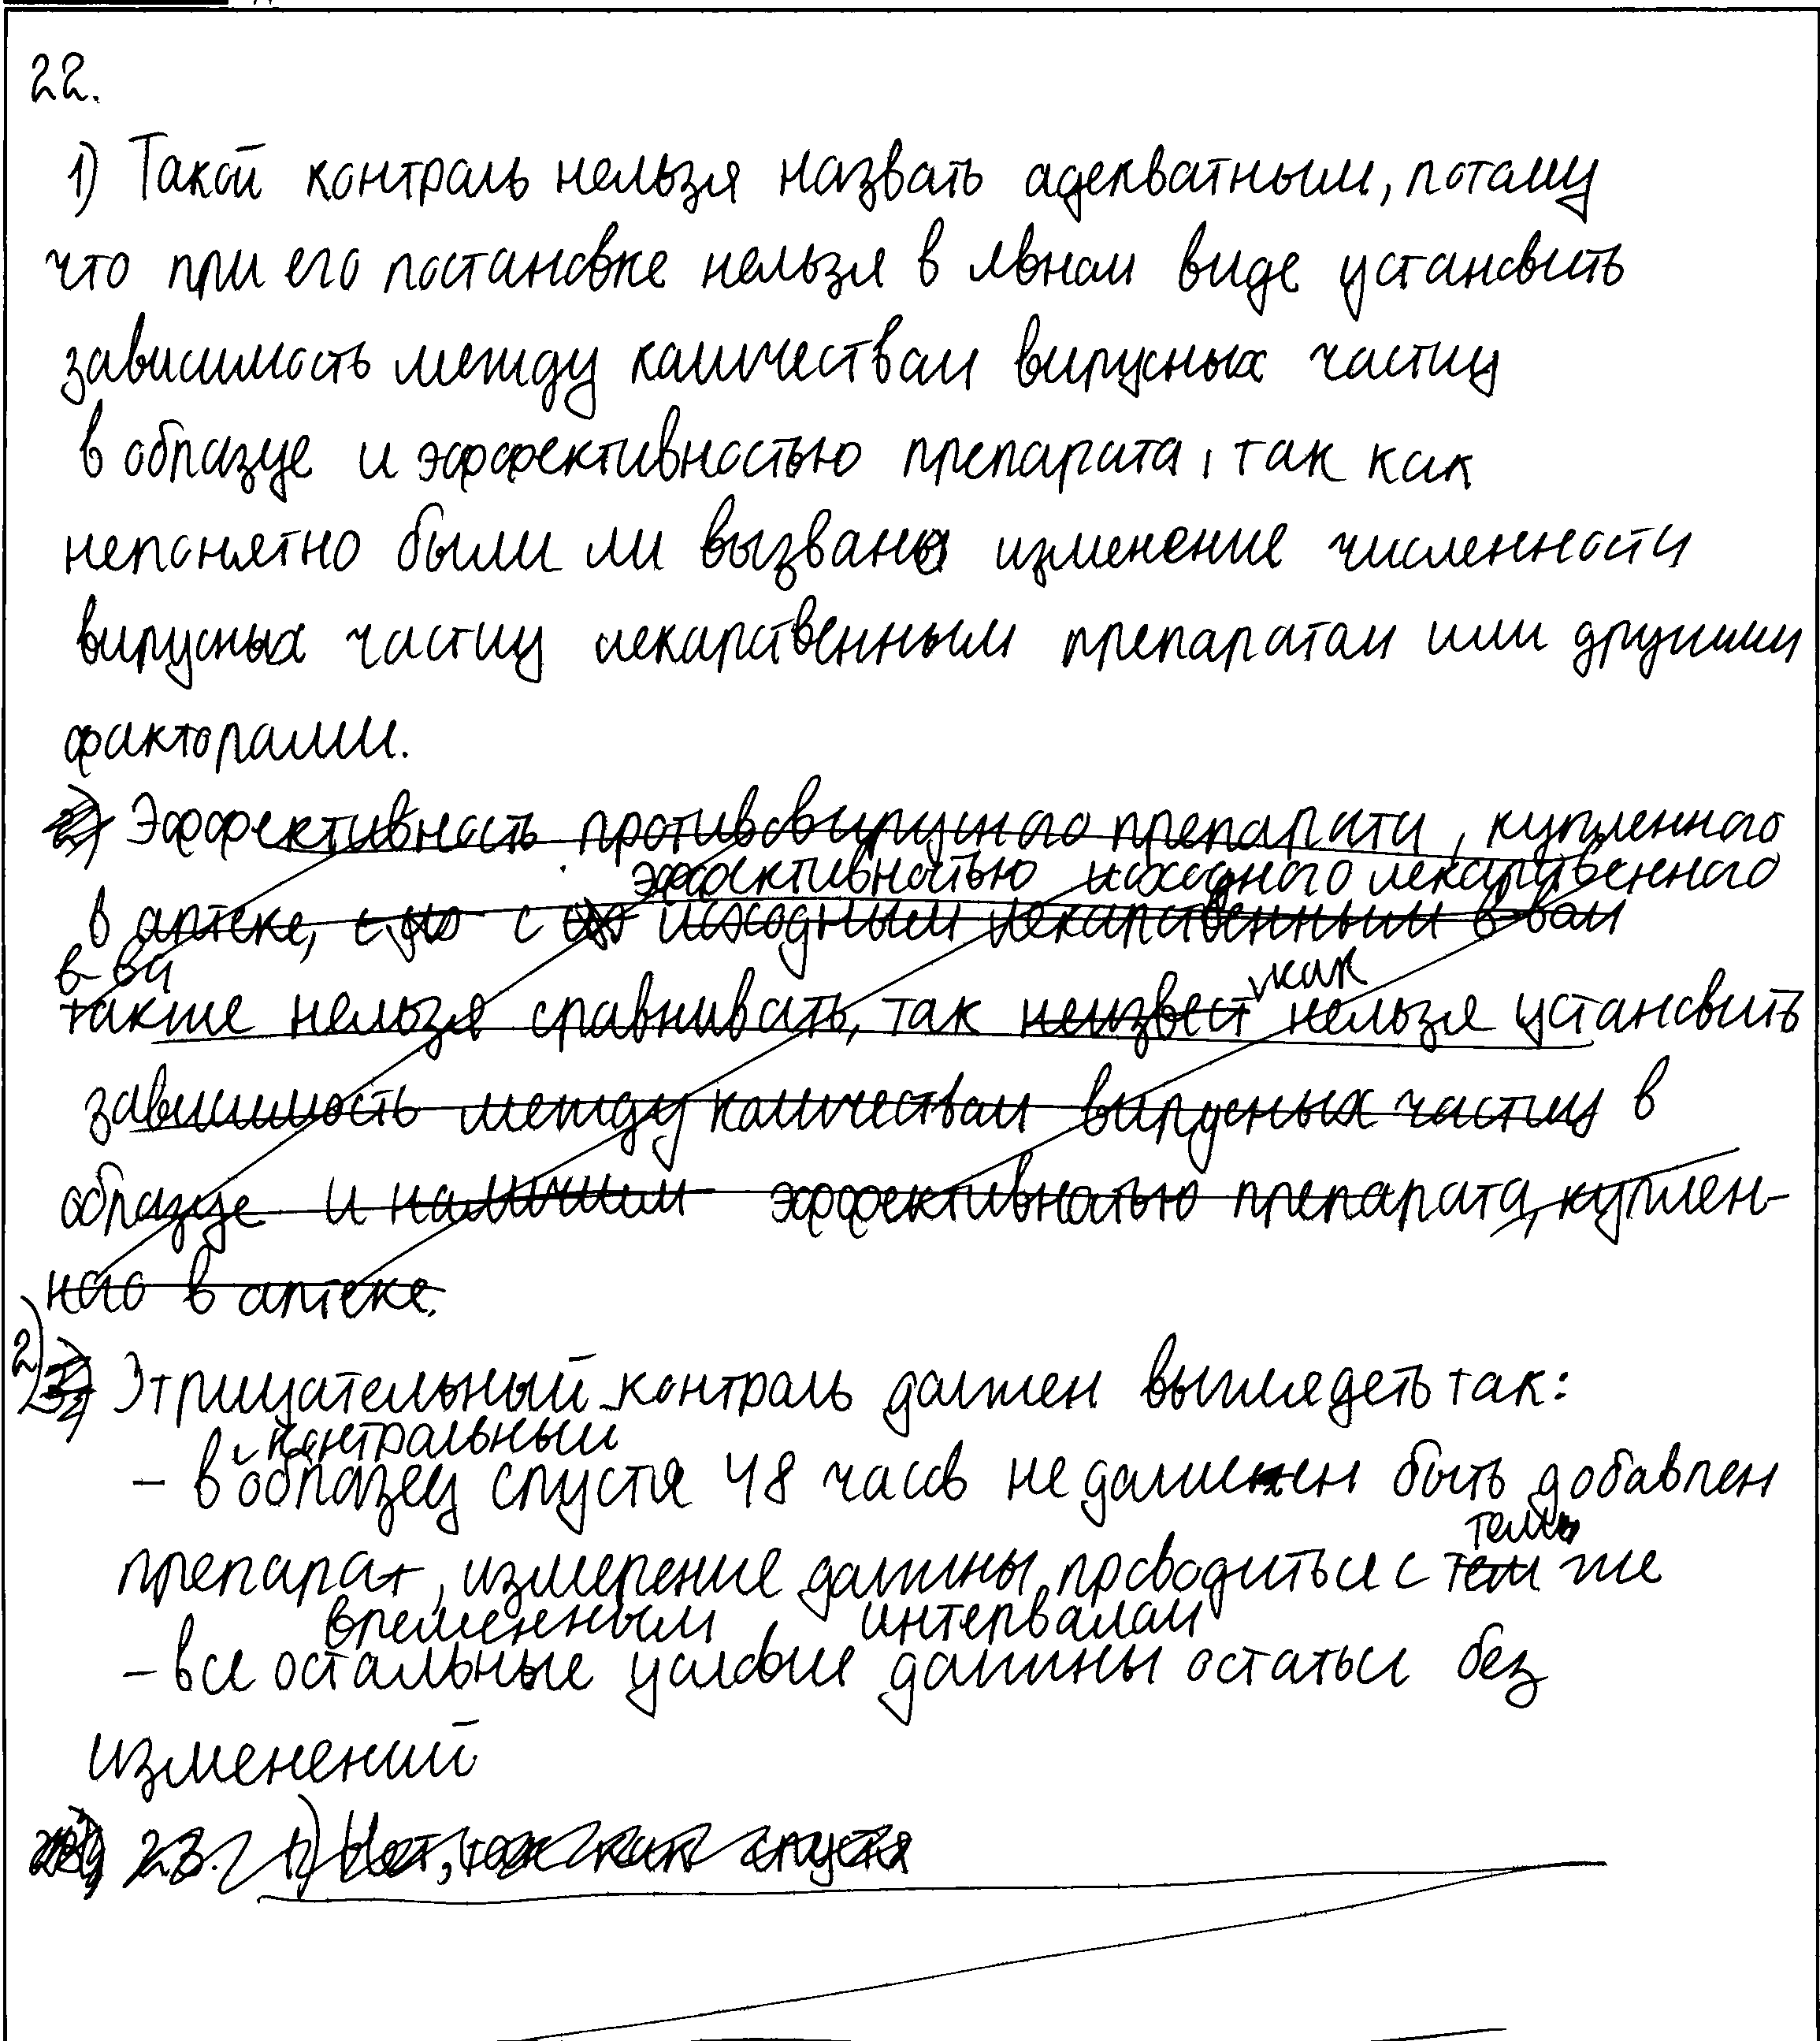 22.
1) Такой контроль нельзя назвать адекватным, потому
что при его постановке нельзя в явном виде установить
зависимость между количеством вирусных частиц
в образце и эффективностью препарата, так как
непонятно были ли вызваны изменение численности
вирусных частиц лекарственным препаратом или другими
факторами.
2) Эффективность противовирусного препарата, купленного
эффективностью исходного лекарственного
в аптеке, с исходным лекарственным в-вом
в-ва
как
также нельзя сравнивать, так неизвест нельзя установить
зависимость между количеством вирусных частиц в
образце и наличием эффективностью препарата, куплен-
ного в аптеке.
2) Отрицательный контроль должен выглядеть так:
контрольный
- в образец спустя 48 часов не должен быть добавлен
теми
препарат, измерение должны проводиться с тем же
временным интервалом
- все остальные условие должны остаться без
изменений
23. 1) Нет, так как спустя